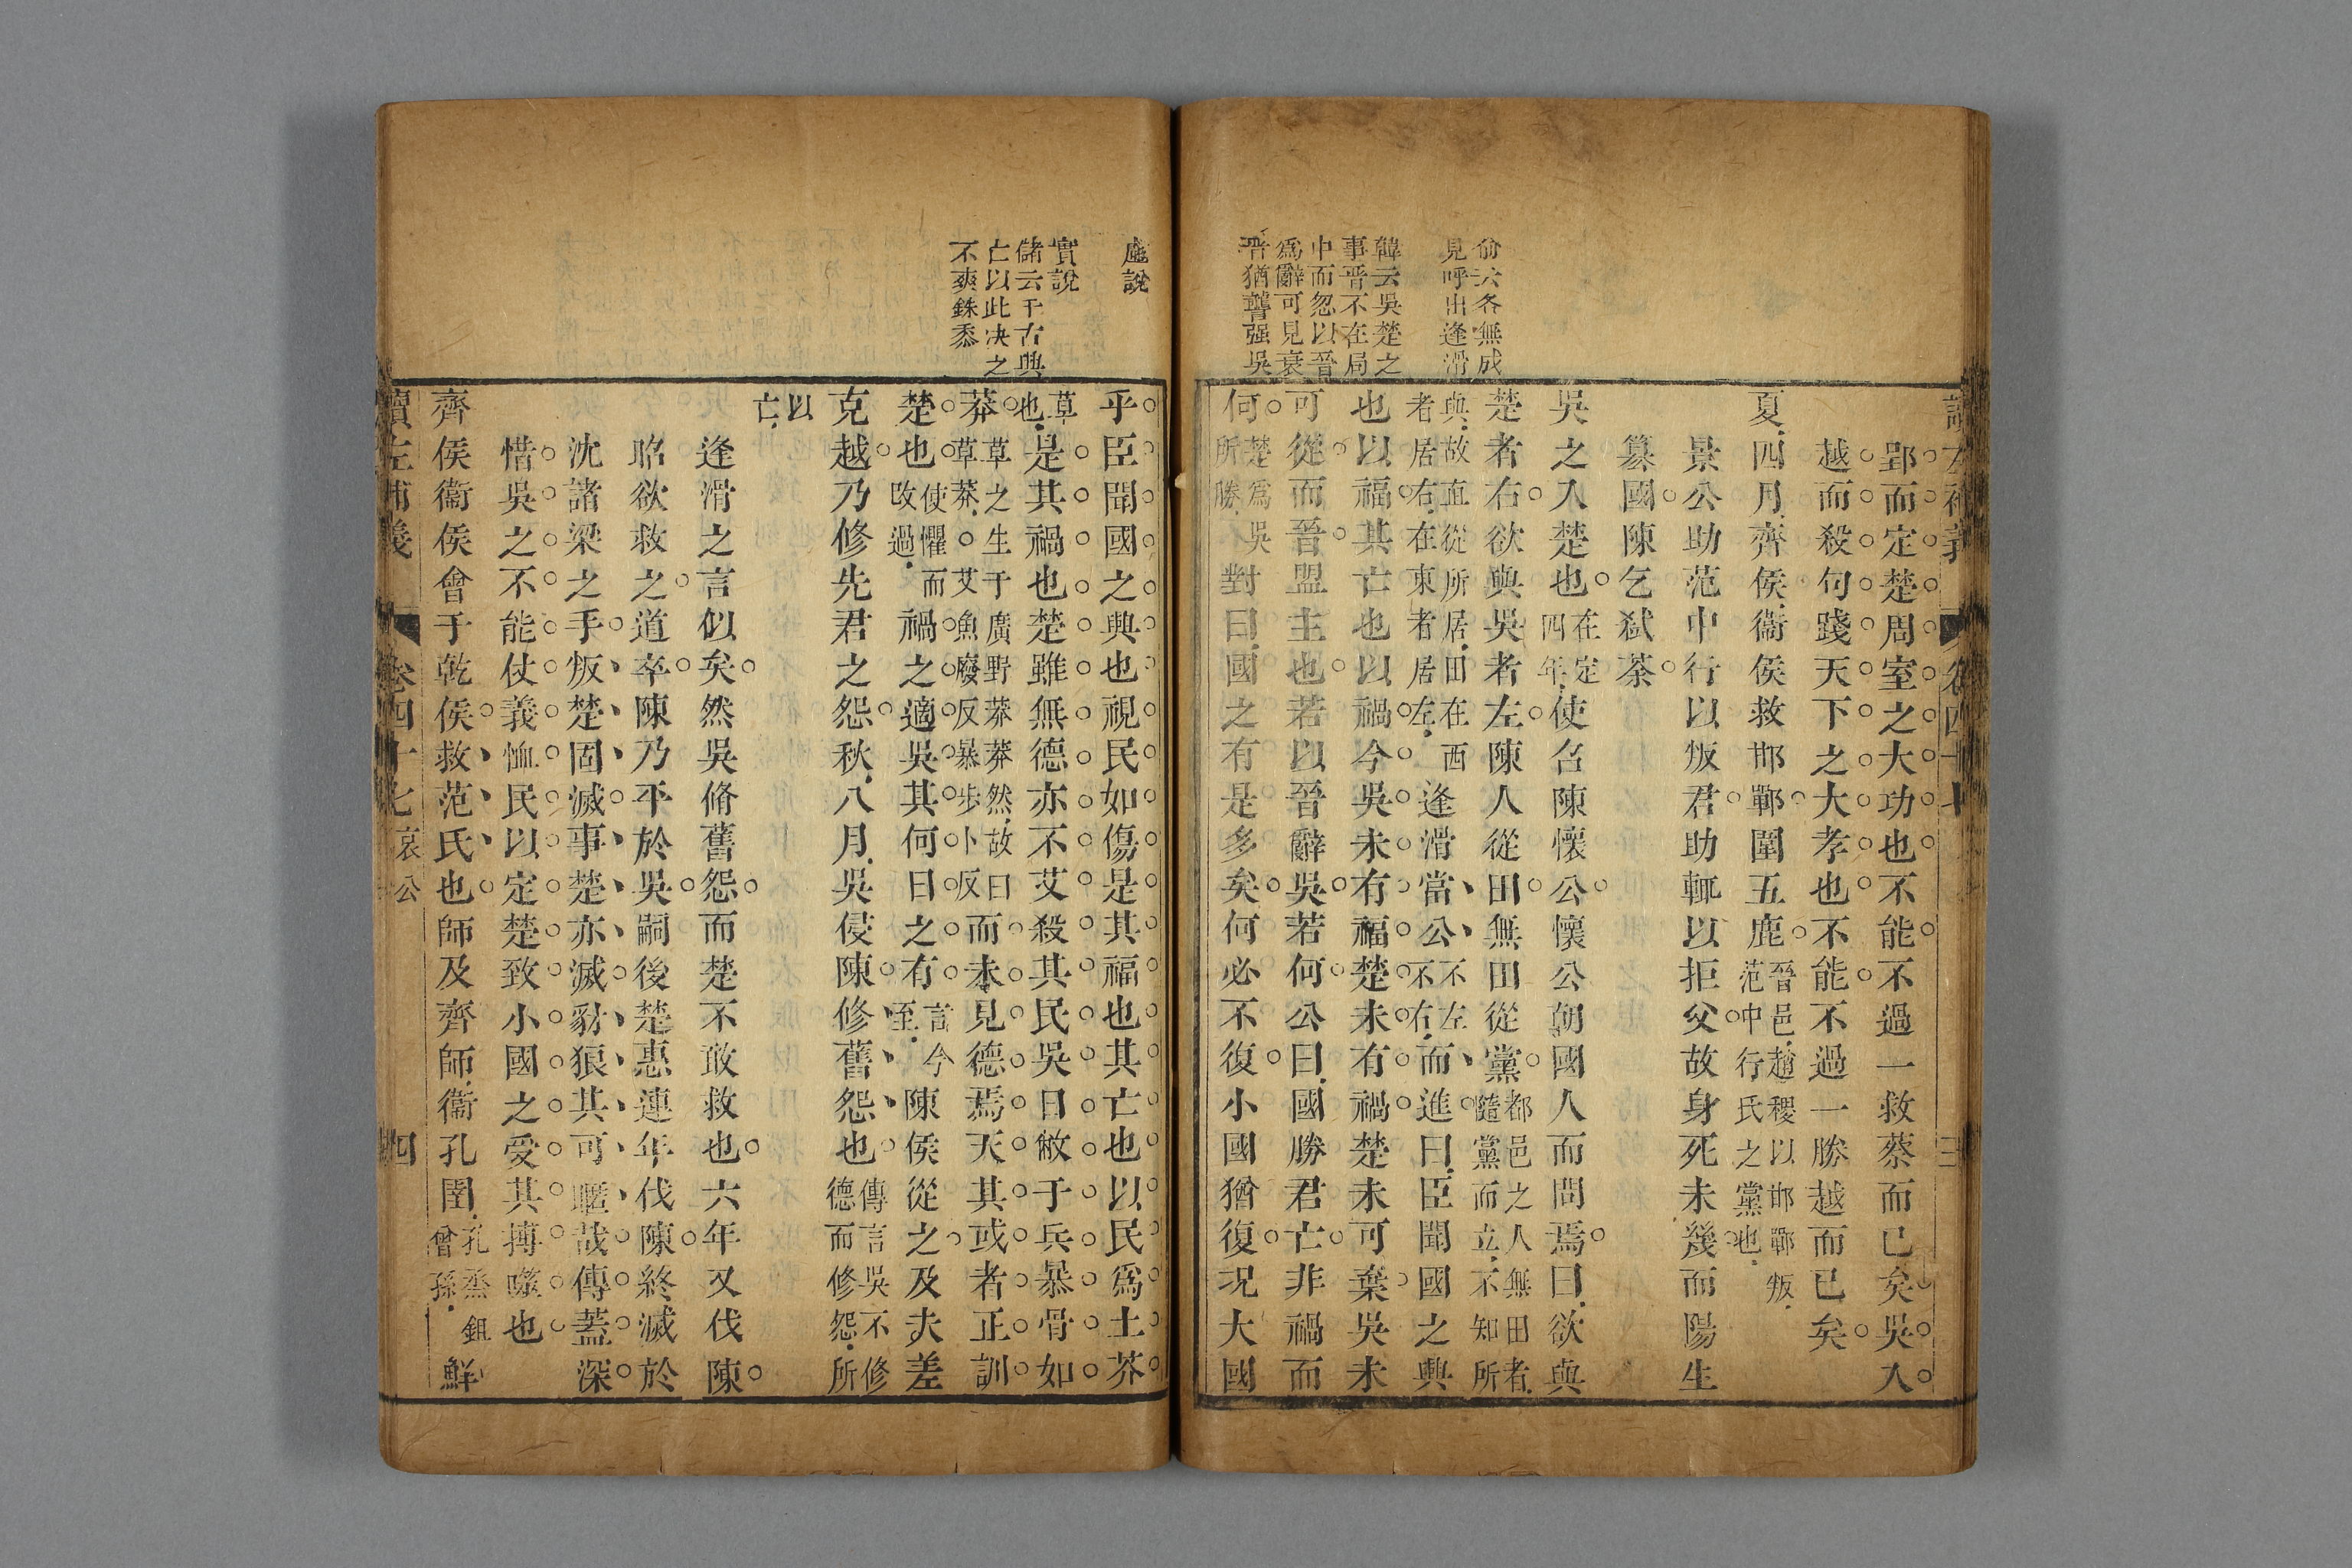 俞云各無成
見呼出逢滑
韓云吳楚之
事晋不在局
中而忽以晉
爲辭可見衰
晋猶讋强吳
郢而定楚周室之大功也不能不過一救蔡而已矣吳入
越而殺句踐天下之大孝也不能不過一勝越而已矣
夏四月齊侯衞侯救邯鄲圍五鹿晉邑趙稷以邯鄲叛范中行氏之黨也
景公助范中行以叛君助輒以拒父故身死未幾而陽生
篡國陳乞弑荼
吳之入楚也在定四年使召陳懷公懷公朝國人而問焉曰欲與
楚者右欲與吳者左陳人從田無田從黨都邑之人無田者隨黨而立不知所
與故直從所居田在西者居右在東者居左逢滑當公不左不右而進曰臣聞國之興
也以福其亡也以禍今吳未有福楚未有禍楚未可棄吳未
可從而晉盟主也若以晉辭吳若何公曰國勝君亡非禍而
何楚爲吳所勝對曰國之有是多矣何必不復小國猶復況大國
讀左補義 卷四十七 三
虛說
實說
儲云千古興
亡以此决之
不爽銖黍
乎臣聞國之興也視民如傷是其福也其亡也以民爲土芥
草也是其禍也楚雖無德亦不艾殺其民吳日敝于兵暴骨如
莽草之生于廣野莽莽然故曰草莽○艾魚廢反暴步卜反而未見德焉天其或者正訓
楚也使懼而改過禍之適吳其何日之有言今至陳侯從之及夫差
克越乃修先君之怨秋八月吳侵陳修舊怨也傳言吳不修德而修怨所
以亡
逢滑之言似矣然吳脩舊怨而楚不敢救也六年又伐陳
昭欲救之道卒陳乃平於吳嗣後楚惠連年伐陳終滅於
沈諸梁之手叛楚固滅事楚亦滅豺狼其可暱哉傳蓋深
惜吳之不能仗義恤民以定楚致小國之受其搏噬也
齊侯衞侯會于乾侯救范氏也師及齊師衞孔圉孔烝鉏曾孫鮮
讀左補義 卷四十七 哀公 四